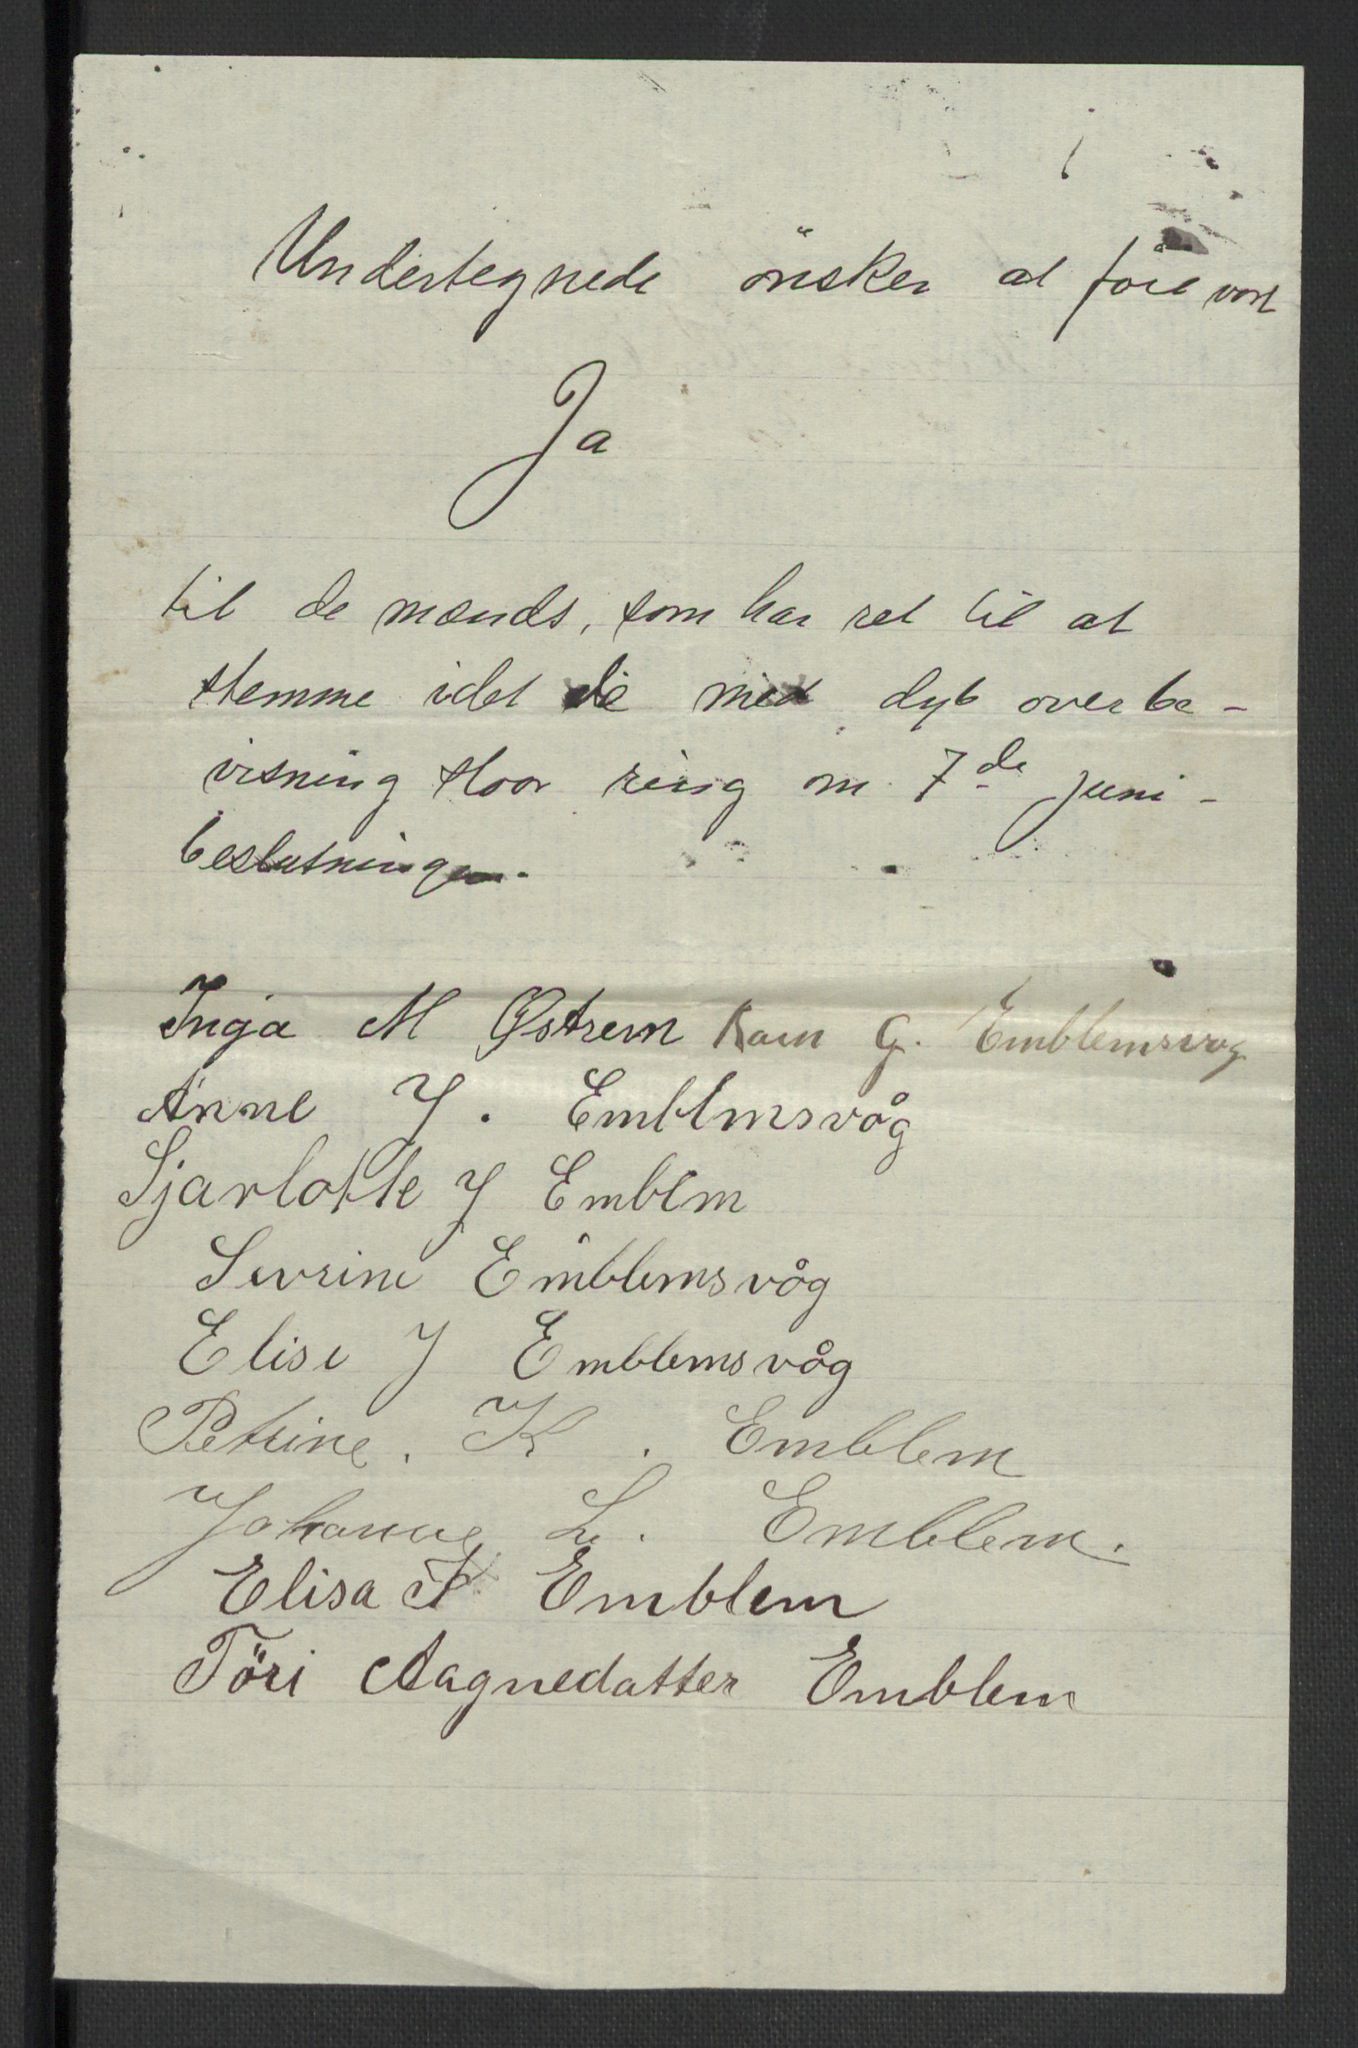 Undertegnede önsker at föie vort
Ja
til de mænds, som har ret til at
stemme idet de med dyb overbe-
visning staar ring om 7de juni-
beslutningen.
Inga M Østrem Karn G. Emblemsvog
Anne J. Emblmsvåg
Sjarlotte J Emblm
Sevrine Emblemsvåg
Elise J Emblemsvåg
Petrine. K. Emblem
Johanne L. Emblem.
Elisa K Emblem
Töri Aagnedatter Emblem